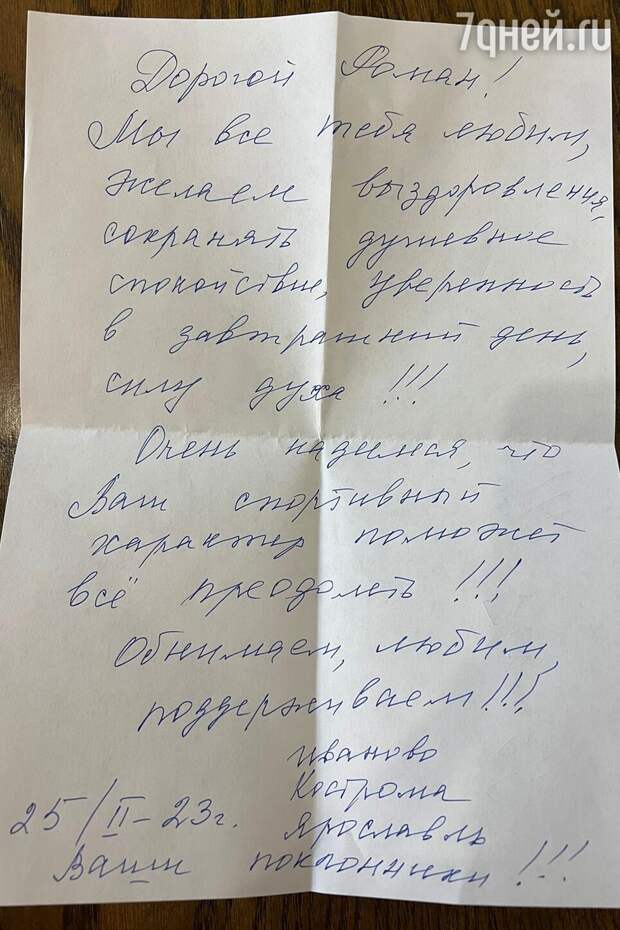 7дней.ru
Дорогой Роман!
Мы все тебя любим,
желаем выздоровления,
сохранять душевное
спокойствие, уверенность
в завтрашний день,
силу духа !!!
Очень надеемся, что
Ваш спортивный
характер поможет
всё преодолеть !!!
Обнимаем, любим,
поддерживаем!!!
Иваново
Кострома
25/II-23г. Ярославль
Ваши поклонники !!!